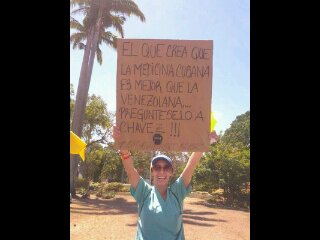 EL QUE CREA QUE
LA MEDICINA CUBANA
ES MEJOR QUE LA
VENEZOLANA...
PREGUNTESELO A
CHAVEZ !!!